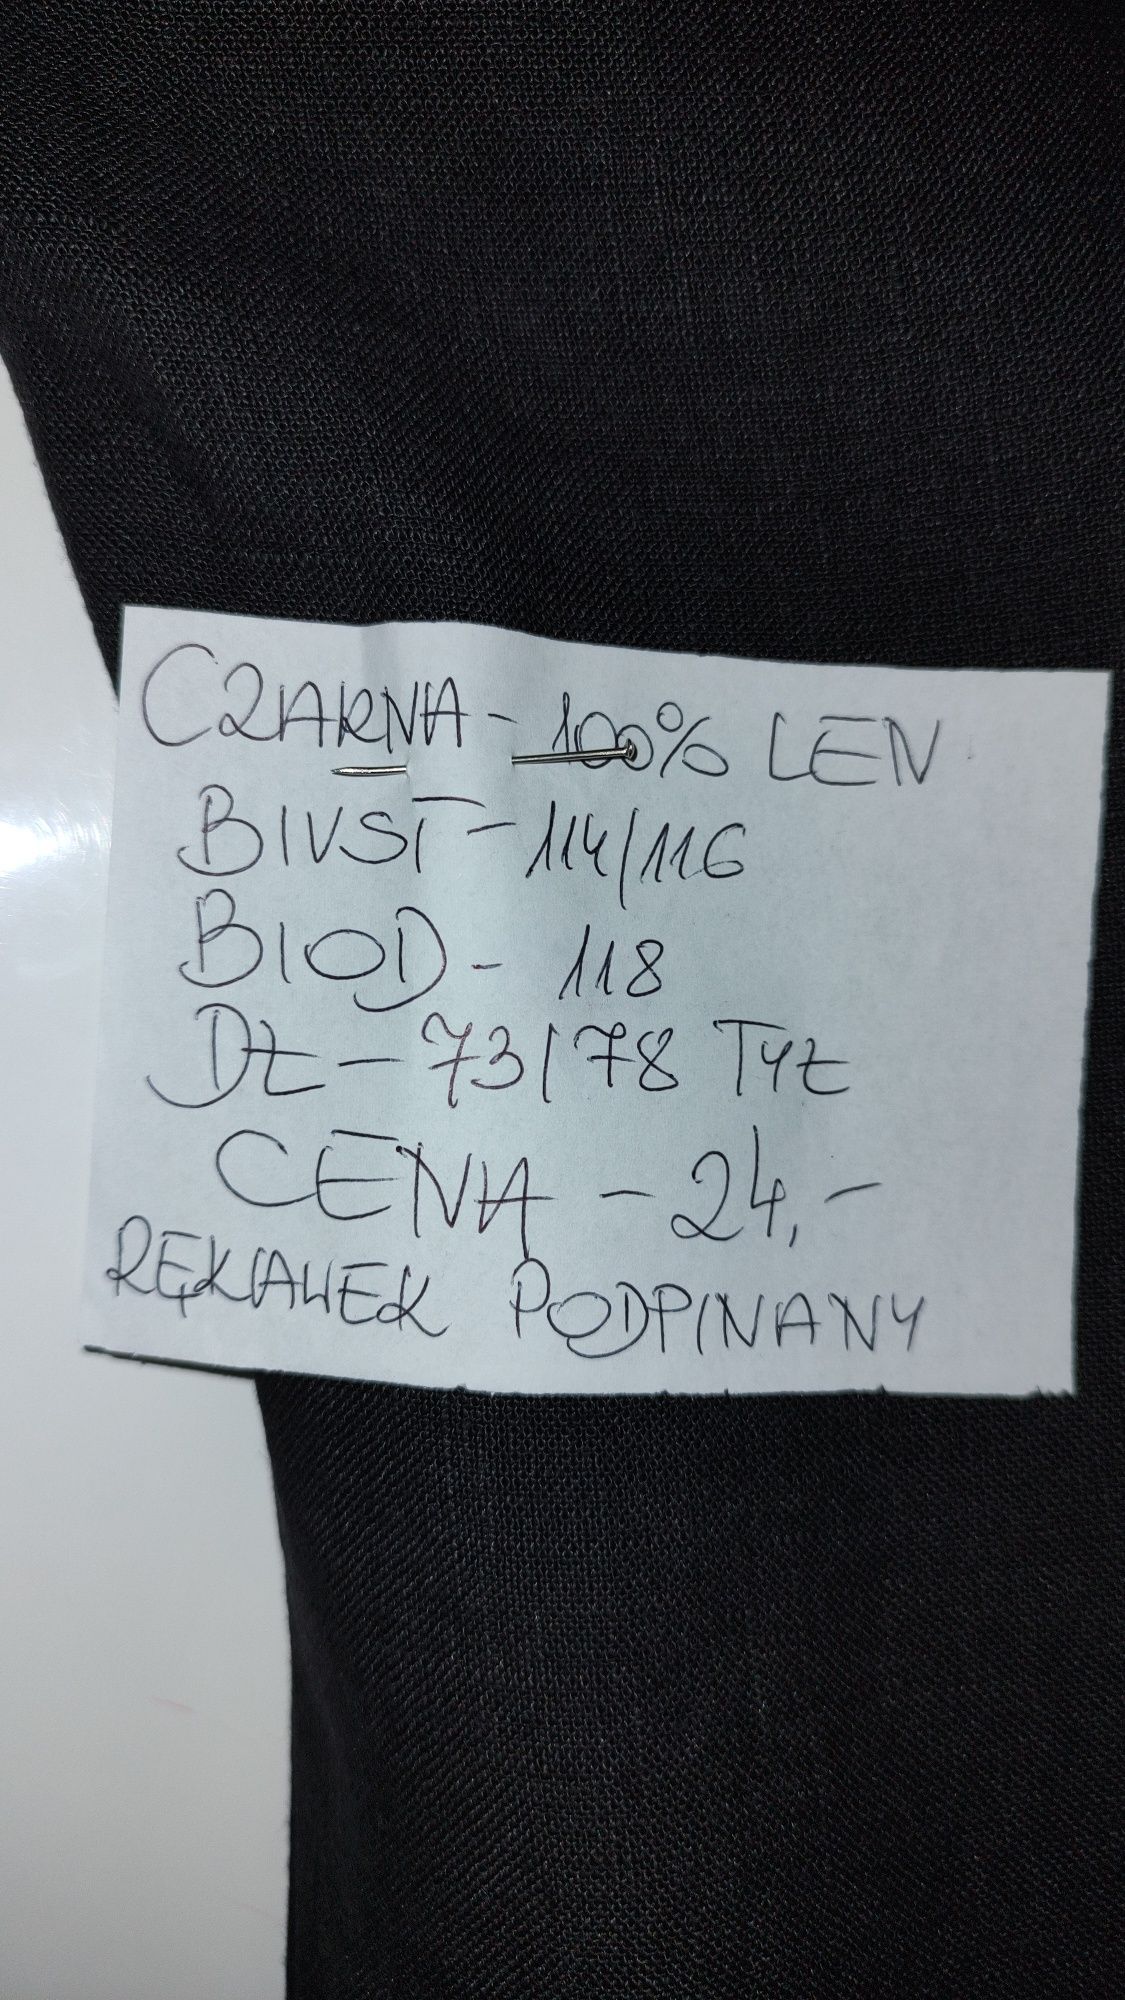 CZARNA - 100% LEN
BIUST - 114/116
BIOD - 118
DŁ - 73/78 TYŁ
CENA - 24,-
RĘKAWEK PODPINANY